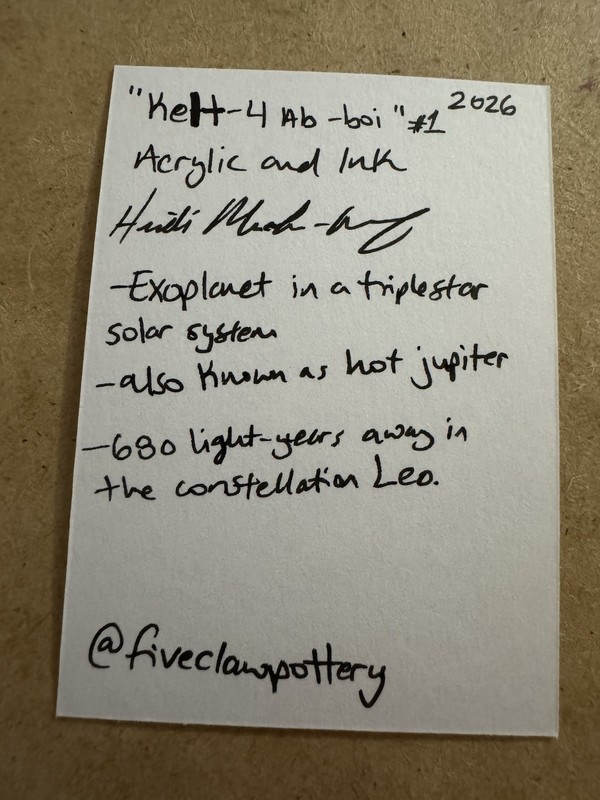 "Kelt-4 Ab-boi" #1 2026
Acrylic and Ink
Heidi
-Exoplanet in a triple star
solar system
-also known as hot jupiter
-680 light-years away in
the constellation Leo.
@fiveclawpottery